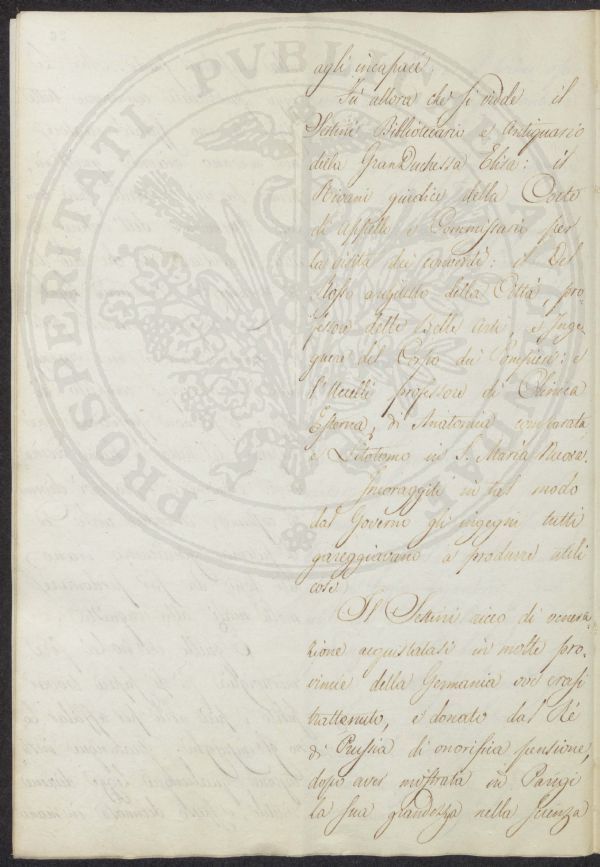 agli incapaci.
Fu allora che si vidde il
Sestini Bibliotecario e Antiquario
della GranDuchessa Elisa: il
Rivani giudice della Corte
di appello e Commissario per
la visita dei conventi: il Del
Rosso architetto della Città, pro
fessore delle Belle Arti, e Inge
gnere del Corpo dei Pompieri: e
l'Uccelli professore di Clinica
Esterna, di Anatomia comparata
e Litotomo in S. Maria Nuova.
Incoraggiti in tal modo
dal Governo gli ingegni tutti
gareggiavano a produrre utili
cose.
Il Sestini ricco di venera
zione acquistatasi in molte pro-
vincie della Germania ove erasi
trattenuto, e donato dal Ré
di Prussia di onorifica pensione,
dopo aver mostrata in Parigi
la sua grandezza nella scienza
PROSPERITATI PVBLICAE